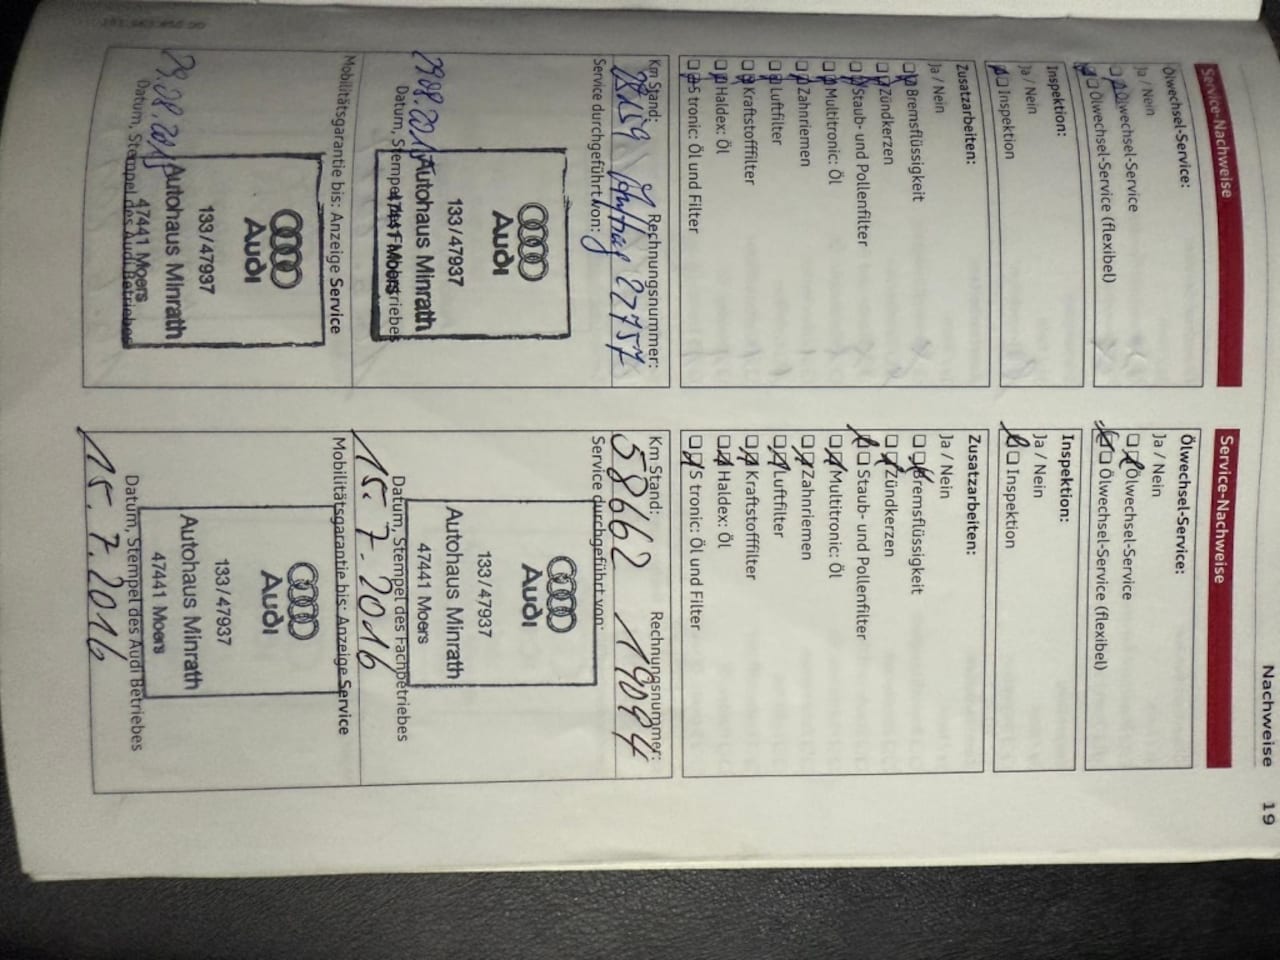 Nachweise 19
Service-Nachweise
Ölwechsel-Service:
Ja / Nein
Ölwechsel-Service
Ölwechsel-Service (flexibel)
Inspektion:
Ja / Nein
Inspektion
Zusatzarbeiten:
Ja / Nein
Bremsflüssigkeit
Zündkerzen
Staub- und Pollenfilter
Multitronic: Öl
Zahnriemen
Luftfilter
Kraftstofffilter
Haldex: Öl
S tronic: Öl und Filter
Km Stand: Rechnungsnummer:
27757
Service durchgeführt von:
Audi
133/47937
Autohaus Minrath
47441 Moers
29.08.2015
Datum, Stempel des Fachbetriebes
Mobilitätsgarantie bis: Anzeige Service
Audi
133/47937
Autohaus Minrath
47441 Moers
29.08.2015
Datum, Stempel des Audi Betriebes
Service-Nachweise
Ölwechsel-Service:
Ja / Nein
Ölwechsel-Service
Ölwechsel-Service (flexibel)
Inspektion:
Ja / Nein
Inspektion
Zusatzarbeiten:
Ja / Nein
Bremsflüssigkeit
Zündkerzen
Staub- und Pollenfilter
Multitronic: Öl
Zahnriemen
Luftfilter
Kraftstofffilter
Haldex: Öl
S tronic: Öl und Filter
Km Stand: Rechnungsnummer:
58662
Service durchgeführt von:
Audi
133/47937
Autohaus Minrath
47441 Moers
Datum, Stempel des Fachbetriebes
15.7.2016
Mobilitätsgarantie bis: Anzeige Service
Audi
133/47937
Autohaus Minrath
47441 Moers
Datum, Stempel des Audi Betriebes
15.7.2016